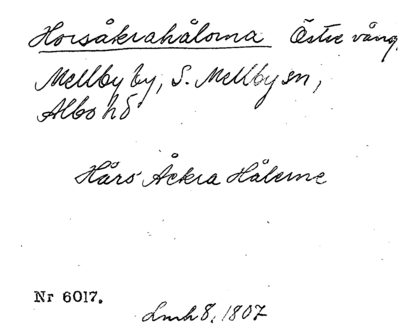 Horsåkrahålorna Östre vång,
Mellby by, S. Mellby sn,
Albo hd
Hårs Åckra Hålerne
Nr 6017.
Lmh 8, 1807